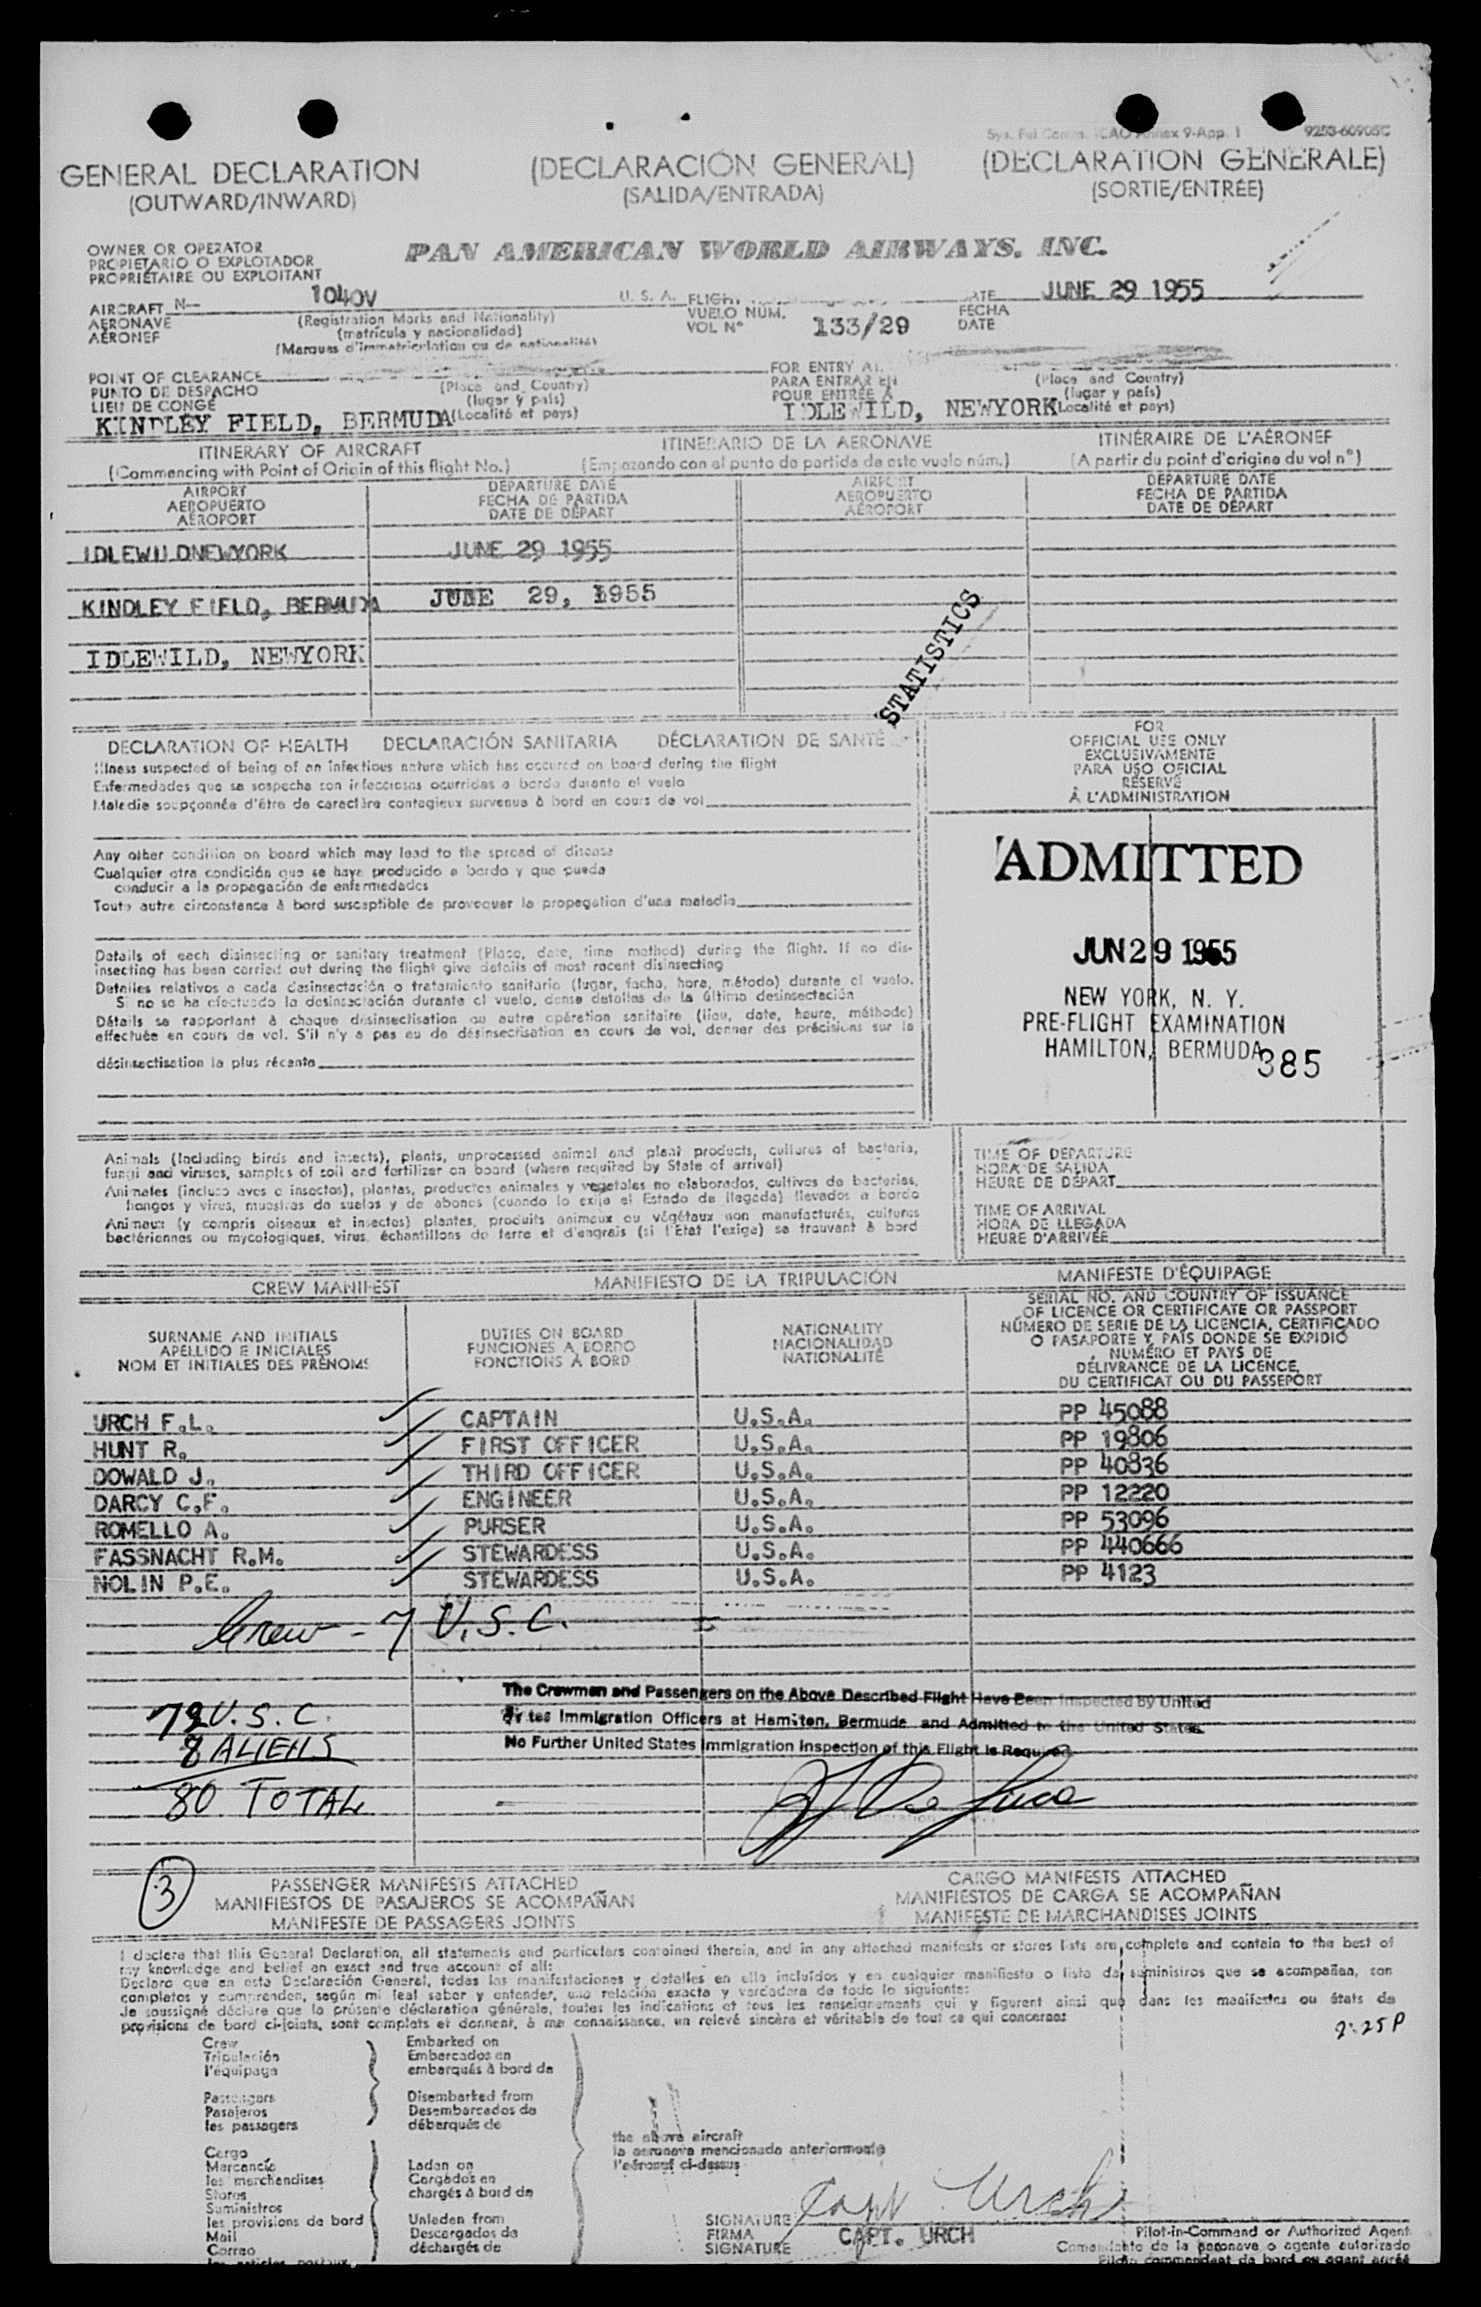 Annex 9-App. 1
9253-60905C
GENERAL DECLARATION (DECLARACIÓN GENERAL) (DECLARATION GENERALE)
(OUTWARD/INWARD) (SALIDA/ENTRADA) (SORTIE/ENTRÉE)
OWNER OR OPERATOR
PROPIETARIO O EXPLOTADOR
PROPRIÉTAIRE OU EXPLOITANT
PAN AMERICAN WORLD AIRWAYS, INC.
AIRCRAFT N— 1040V U. S. A.
AERONAVE
AÉRONEF
(Registration Marks and Nationality)
(matrícula y nacionalidad)
(Marques d'immatriculation ou de nationalité)
VUELO NÚM.
VOL N° 133/29
JUNE 29 1955
FECHA
DATE
POINT OF CLEARANCE
PUNTO DE DESPACHO
LIEU DE CONGÉ
KINDLEY FIELD, BERMUDA
(Place and Country)
(lugar y país)
(Localité et pays)
FOR ENTRY AT
PARA ENTRAR EN
POUR ENTRÉE À
IDLEWILD, NEWYORK
(Place and Country)
(lugar y país)
(Localité et pays)
ITINERARY OF AIRCRAFT ITINERARIO DE LA AERONAVE ITINÉRAIRE DE L'AÉRONEF
(Commencing with Point of Origin of this flight No.) (Empezando con el punto de partida de este vuelo núm.) (A partir du point d'origine du vol n°)
AIRPORT
AEROPUERTO
AÉROPORT
DEPARTURE DATE
FECHA DE PARTIDA
DATE DE DÉPART
AIRPORT
AEROPUERTO
AÉROPORT
DEPARTURE DATE
FECHA DE PARTIDA
DATE DE DÉPART
IDLEWILDNEWYORK JUNE 29 1955
KINDLEY FIELD, BERMUDA JUNE 29, 1955
IDLEWILD, NEWYORK
STATISTICS
DECLARATION OF HEALTH DECLARACIÓN SANITARIA DÉCLARATION DE SANTÉ
Illness suspected of being of an infectious nature which has occured on board during the flight
Enfermedades que se sospecha son infecciosas ocurridas a bordo durante el vuelo
Maladie soupçonnée d'être de caractère contagieux survenue à bord en cours de vol
Any other condition on board which may lead to the spread of disease
Cualquier otra condición que se haya producido a bordo y que pueda
conducir a la propagación de enfermedades
Toute autre circonstance à bord susceptible de provoquer la propagation d'une maladie
Details of each disinsecting or sanitary treatment (Place, date, time method) during the flight. If no dis-
insecting has been carried out during the flight give details of most recent disinsecting
Detalles relativos a cada desinsectación o tratamiento sanitario (lugar, fecha, hora, método) durante el vuelo.
Si no se ha efectuado la desinsectación durante el vuelo, dense detalles de la última desinsectación
Détails se rapportant à chaque désinsectisation ou autre opération sanitaire (lieu, date, heure, méthode)
effectuée en cours de vol. S'il n'y a pas eu de désinsectisation en cours de vol, donner des précisions sur la
désinsectisation la plus récente
FOR
OFFICIAL USE ONLY
EXCLUSIVAMENTE
PARA USO OFICIAL
RÉSERVÉ
À L'ADMINISTRATION
ADMITTED
JUN 29 1955
NEW YORK, N. Y.
PRE-FLIGHT EXAMINATION
HAMILTON, BERMUDA
385
Animals (Including birds and insects), plants, unprocessed animal and plant products, cultures of bacteria,
fungi and viruses, samples of soil and fertilizer on board (where required by State of arrival)
Animales (incluso aves e insectos), plantas, productos animales y vegetales no elaborados, cultivos de bacterias,
hongos y virus, muestras de suelos y de abonos (cuando lo exija el Estado de llegada) llevados a bordo
Animaux (y compris oiseaux et insectes) plantes, produits animaux ou végétaux non manufacturés, cultures
bactériennes ou mycologiques, virus, échantillons de terre et d'engrais (si l'État l'exige) se trouvant à bord
TIME OF DEPARTURE
HORA DE SALIDA
HEURE DE DÉPART
TIME OF ARRIVAL
HORA DE LLEGADA
HEURE D'ARRIVÉE
CREW MANIFEST MANIFIESTO DE LA TRIPULACIÓN MANIFESTE D'ÉQUIPAGE
SURNAME AND INITIALS
APELLIDO E INICIALES
NOM ET INITIALES DES PRÉNOMS
DUTIES ON BOARD
FUNCIONES A BORDO
FONCTIONS À BORD
NATIONALITY
NACIONALIDAD
NATIONALITÉ
SERIAL NO. AND COUNTRY OF ISSUANCE
OF LICENCE OR CERTIFICATE OR PASSPORT
NÚMERO DE SERIE DE LA LICENCIA, CERTIFICADO
O PASAPORTE Y PAÍS DONDE SE EXPIDIÓ
NUMÉRO ET PAYS DE
DÉLIVRANCE DE LA LICENCE,
DU CERTIFICAT OU DU PASSEPORT
URCH F.L. CAPTAIN U.S.A. PP 45088
HUNT R. FIRST OFFICER U.S.A. PP 19806
DOWALD J. THIRD OFFICER U.S.A. PP 40836
DARCY C.F. ENGINEER U.S.A. PP 12220
ROMELLO A. PURSER U.S.A. PP 53096
FASSNACHT R.M. STEWARDESS U.S.A. PP 440666
NOLIN P.E. STEWARDESS U.S.A. PP 4123
Crew - 7 U.S.C.
The Crewmen and Passengers on the Above Described Flight Have Been Inspected by United
States Immigration Officers at Hamilton, Bermuda and Admitted to the United States.
No Further United States Immigration Inspection of this Flight Is Required.
72 U.S.C.
8 ALIENS
80 TOTAL
3
PASSENGER MANIFESTS ATTACHED
MANIFIESTOS DE PASAJEROS SE ACOMPAÑAN
MANIFESTE DE PASSAGERS JOINTS
CARGO MANIFESTS ATTACHED
MANIFIESTOS DE CARGA SE ACOMPAÑAN
MANIFESTE DE MARCHANDISES JOINTS
I declare that this General Declaration, all statements and particulars contained therein, and in any attached manifests or stores lists are complete and contain to the best of
my knowledge and belief an exact and true account of all:
Declaro que en esta Declaración General, todas las manifestaciones y detalles en ella incluídos y en cualquier manifiesto o lista de suministros que se acompañan, son
completos y comprenden, según mi leal saber y entender, una relación exacta y verdadera de todo lo siguiente:
Je soussigné déclare que la présente déclaration générale, toutes les indications et tous les renseignements qui y figurent ainsi que dans les manifestes ou états de
provisions de bord ci-joints, sont complets et donnent, à ma connaissance, un relevé sincère et véritable de tout ce qui concerne:
2:25P
Crew
Tripulación
l'équipage
Passengers
Pasajeros
les passagers
Cargo
Mercancía
les marchandises
Stores
Suministros
les provisions de bord
Mail
Correo
les articles postaux
Embarked on
Embarcados en
embarqués à bord de
Disembarked from
Desembarcados de
débarqués de
Laden on
Cargados en
chargés à bord de
Unladen from
Descargados de
déchargés de
the above aircraft
la aeronave mencionada anteriormente
l'aéronef ci-dessus
Capt Urch
SIGNATURE
FIRMA
SIGNATURE
CAPT. URCH
Pilot-in-Command or Authorized Agent
Comandante de la aeronave o agente autorizado
Pilote commandant de bord ou agent agréé